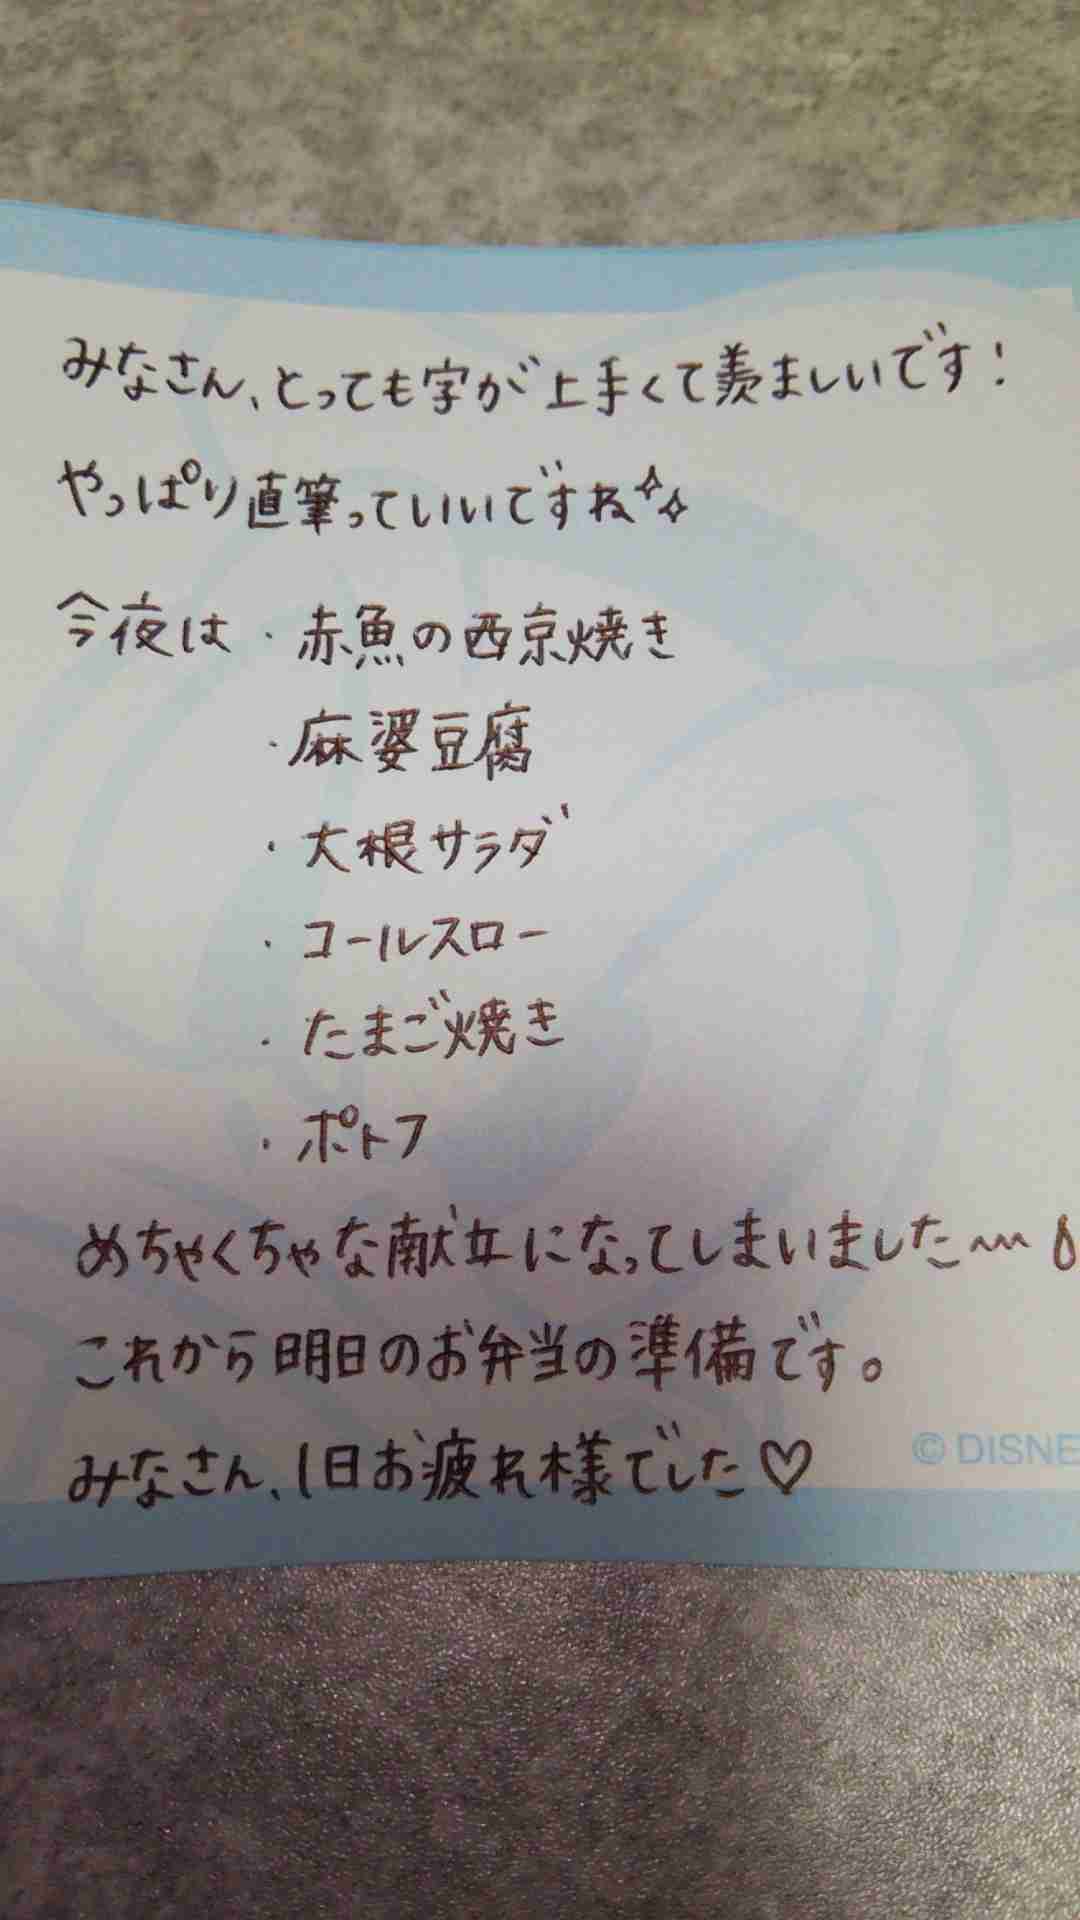 みなさん、とっても字が上手くて羨ましいです!
やっぱり直筆っていいですね✧✧
今夜は ・赤魚の西京焼き
・麻婆豆腐
・大根サラダ
・コールスロー
・たまご焼き
・ポトフ
めちゃくちゃな献立になってしまいました〜
これから明日のお弁当の準備です。
みなさん、1日お疲れ様でした♡
© DISNE